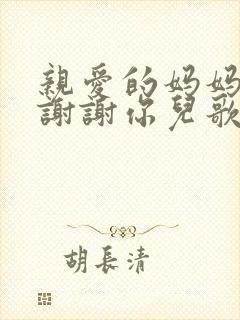 親愛的妈妈
謝謝你兒歌
胡長清